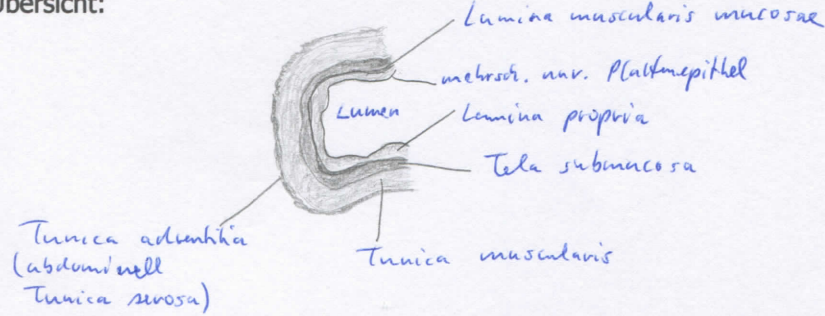 Übersicht:
Lamina muscularis mucosae
mehrsch. unv. Plattenepithel
Lumen
Lamina propria
Tela submucosa
Tunica adventitia
(abdominell
Tunica serosa)
Tunica muscularis